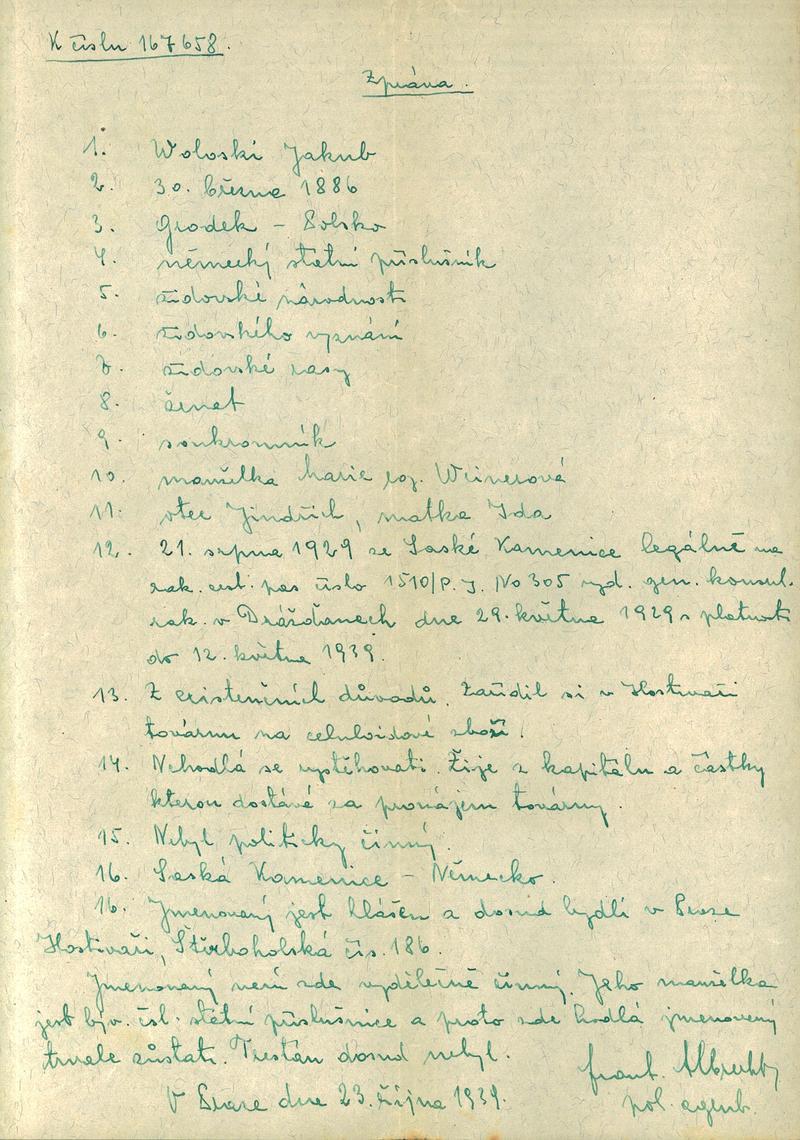 K číslu 167658.
Zpráva.
1. Woloski Jakub
2. 30. března 1886
3. Grodek - Polsko
4. německý státní příslušník
5. židovské národnosti
6. židovského vyznání
7. židovské rasy
8. ženat
9. soukromník
10. manželka Marie roz. Weinerová
11. otec Jindřich, matka Ida
12. 21. srpna 1929 ze Saské Kamenice legálně na
rak. cest. pas číslo 1510/P. J. No 305 vyd. gen. konsul.
rak. v Drážďanech dne 29. května 1929 s platností
do 12. května 1939.
13. Z existenčních důvodů. Zařídil si v Hostivaři
továrnu na celuloidové zboží.
14. Nehodlá se vystěhovati. Žije z kapitálu a částky
kterou dostává za pronájem továrny.
15. Nebyl politicky činný.
16. Saská Kamenice - Německo.
16. Jmenovaný jest hlášen a dosud bydlí v Praze
Hostivaři, Štěrboholská čís. 186.
Jmenovaný není zde výdělečně činný. Jeho manželka
jest býv. čsl. státní příslušnice a proto zde hodlá jmenovaný
trvale zůstati. Trestán dosud nebyl.
frant. Albrecht
V Praze dne 23. října 1939.
pol. agent.